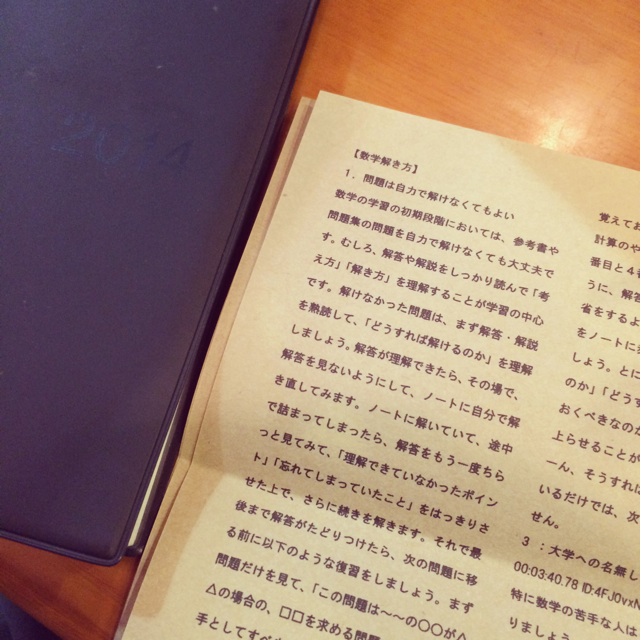 2014
【数学解き方】
1. 問題は自力で解けなくてもよい
数学の学習の初期段階においては、参考書や
問題集の問題を自力で解けなくても大丈夫で
す。むしろ、解答や解説をしっかり読んで「考
え方」「解き方」を理解することが学習の中心
です。解けなかった問題は、まず解答・解説
を熟読して、「どうすれば解けるのか」を理解
しましょう。解答が理解できたら、その場で、
解答を見ないようにして、ノートに自分で解
き直してみます。ノートに解いていて、途中
で詰まってしまったら、解答をもう一度ちら
っと見てみて、「理解できていなかったポイン
ト」「忘れてしまっていたこと」をはっきりさ
せた上で、さらに続きを解きます。それで最
後まで解答がたどりつけたら、次の問題に移
る前に以下のような復習をしましょう。まず
問題だけを見て、「この問題は～～の○○が△
△の場合の、□□を求める問題
手としてすべ
覚えてお
計算のや
番目と4番
うに、解答
省をすると
をノートに
しょう。とに
のか」「どうす
おくべきなのか
上らせることが
ーん、そうすれば
いるだけでは、次
せん。
3 ：大学への名無し
00:03:40.78 ID:4FJ0vxN
特に数学の苦手な人は
りましょ